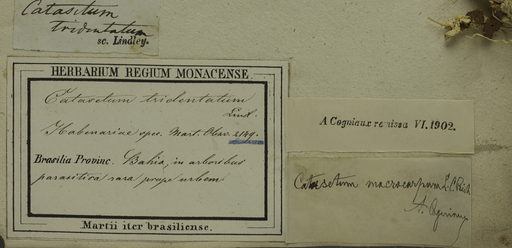 Catasetum
tridentatum
sc. Lindley.
HERBARIUM REGIUM MONACENSE.
Catasetum tridentatum
Lindl.
Habenariae spec. Mart. Obser. 2149.
Brasilia Provinc. Bahia, in arboribus
parasitica rara prope urbem
Martii iter brasiliense.
A Cogniaux remissa VI. 1902.
Catasetum macrocarpum L.C. Rich
A. Cogniaux